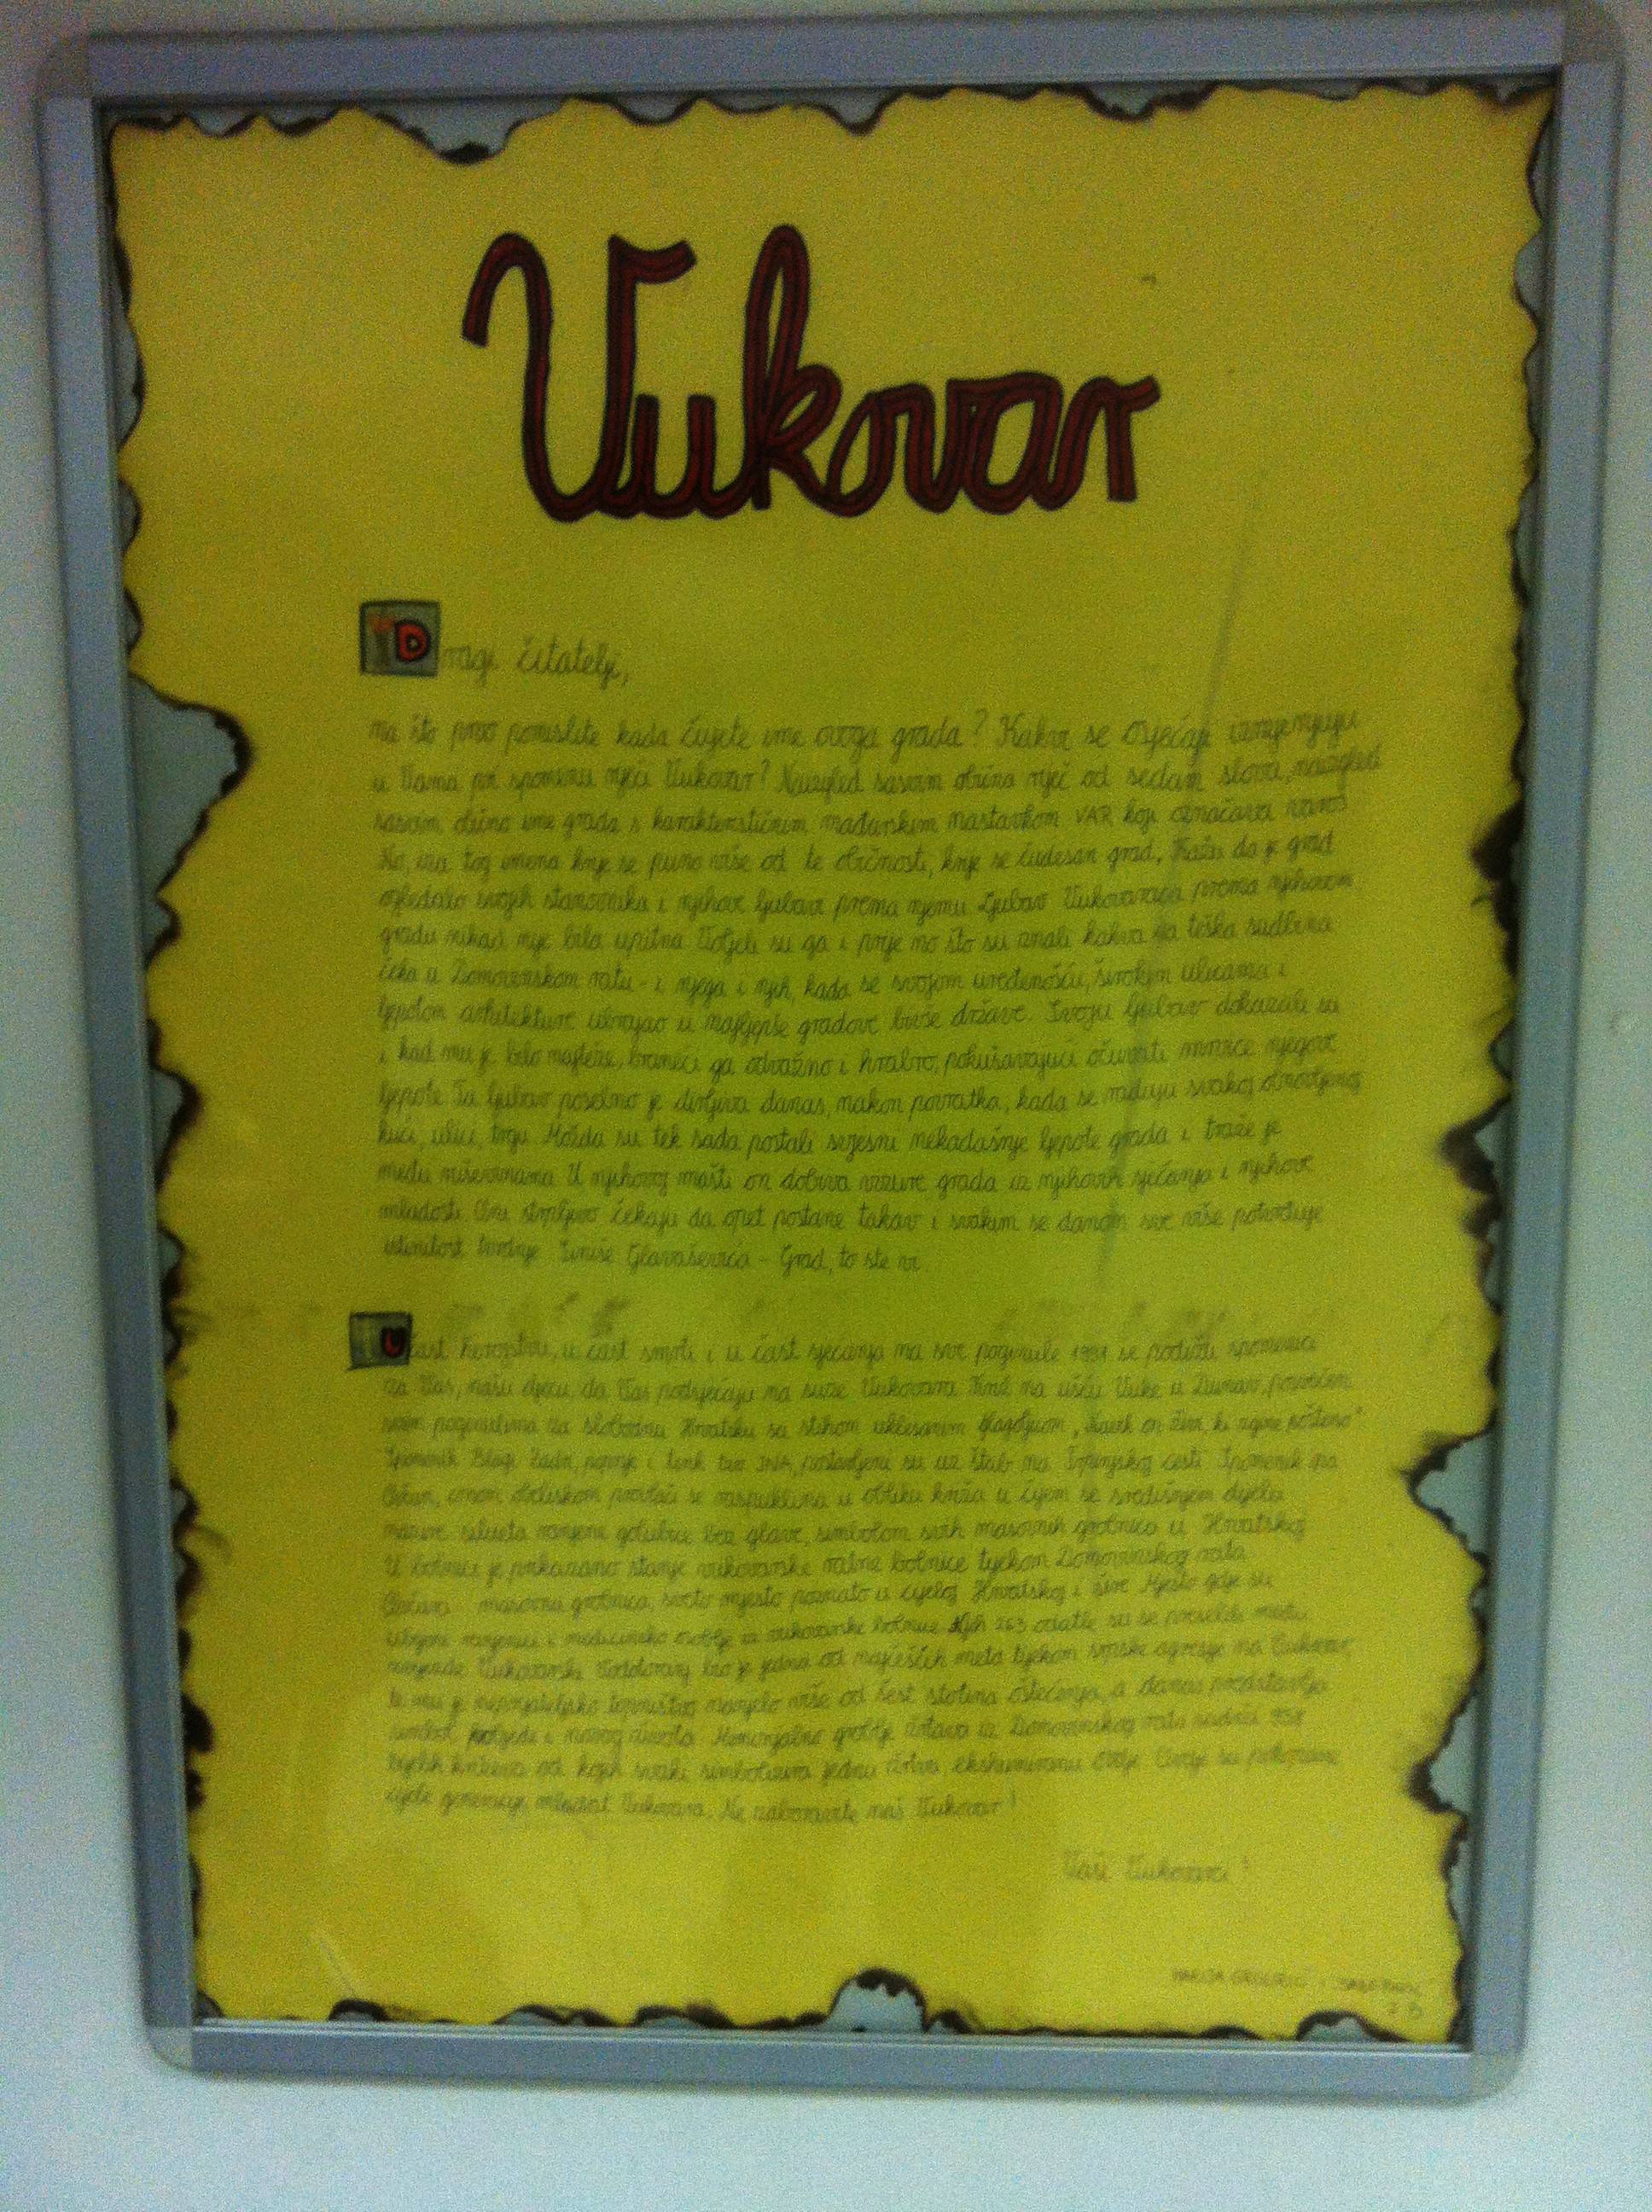 Vukovar
Dragi čitatelji,
na što prvo pomislite kada čujete ime ovoga grada? Kakvi se osjećaji
u Vama pri spomenu riječi Vukovar? Naizgled sasvim obična riječ od sedam slova, naizgled
sasvim obično ime grada s karakterističnim mađarskim nastavkom VAR koji označava
No, iza tog imena krije se puno više od te običnosti, krije se čudesan grad. Kažu da je grad
ogledalo svojih stanovnika i njihove ljubavi prema njemu. Ljubav Vukovaraca prema njihovom
gradu nikad nije bila upitna. Voljeli su ga i prije no što su znali kakva ga teška sudbina
čeka u Domovinskom ratu - i njega i njih, kada se svojom uređenošću, širokim ulicama i
ljepotom arhitekture ubrajao u najljepše gradove bivše države. Svoju ljubav dokazali su
i kad mu je bilo najteže, braneći ga odvažno i hrabro, pokušavajući očuvati mrvice njegove
ljepote. Ta ljubav posebno je dirljiva danas, nakon povratka, kada se raduju svakoj obnovljenoj
kući, ulici, trgu. Možda su tek sada postali svjesni nekadašnje ljepote grada i traže je
među ruševinama. U njihovoj mašti on dobiva obrise grada iz njihovih sjećanja i njihove
mladosti. Oni strpljivo čekaju da opet postane takav i svakim se danom sve više potvrđuje
istinitost tvrdnje Siniše Glavaševića - Grad, to ste vi.
U čast herojstvu, u čast smrti i u čast sjećanja na sve poginule 1991. se podižu spomenici
za Vas, našu djecu, da Vas podsjećaju na suze Vukovara. Križ na ušću Vuke u Dunav, posvećen
svim poginulima za slobodnu Hrvatsku sa stihom uklesanim glagoljicom
tenk bivše JNA, postavljeni su uz štab na Trpinjskoj cesti. Spomenik na
se raspuklina u obliku križa u čijem se središnjem dijelu
silueta ranjene golubice bez glave, simbolom svih masovnih grobnica u Hrvatskoj.
U bolnici je prikazano stanje vukovarske ratne bolnice tijekom Domovinskog rata.
Ovčara - masovna grobnica, sveto mjesto poznato u cijeloj Hrvatskoj i šire. Mjesto gdje su
ubijeni ranjenici i medicinsko osoblje iz vukovarske bolnice. Njih 263 odatle su se preselili među
Vodotoranj bio je jedna od najčešćih meta tijekom srpske agresije na Vukovar,
te mu je neprijateljsko topništvo nanijelo više od šest stotina oštećenja, a danas predstavlja
simbol pobjede i novog života. Memorijalno groblje žrtava iz Domovinskog rata sadrži 938
bijelih križeva od kojih svaki simbolizira jednu žrtvu, ekshumiranu ovdje. Ovdje su pokopane
cijele generacije mladosti Vukovara. Ne zaboravite naš Vukovar!
Vaši Vukovarci!